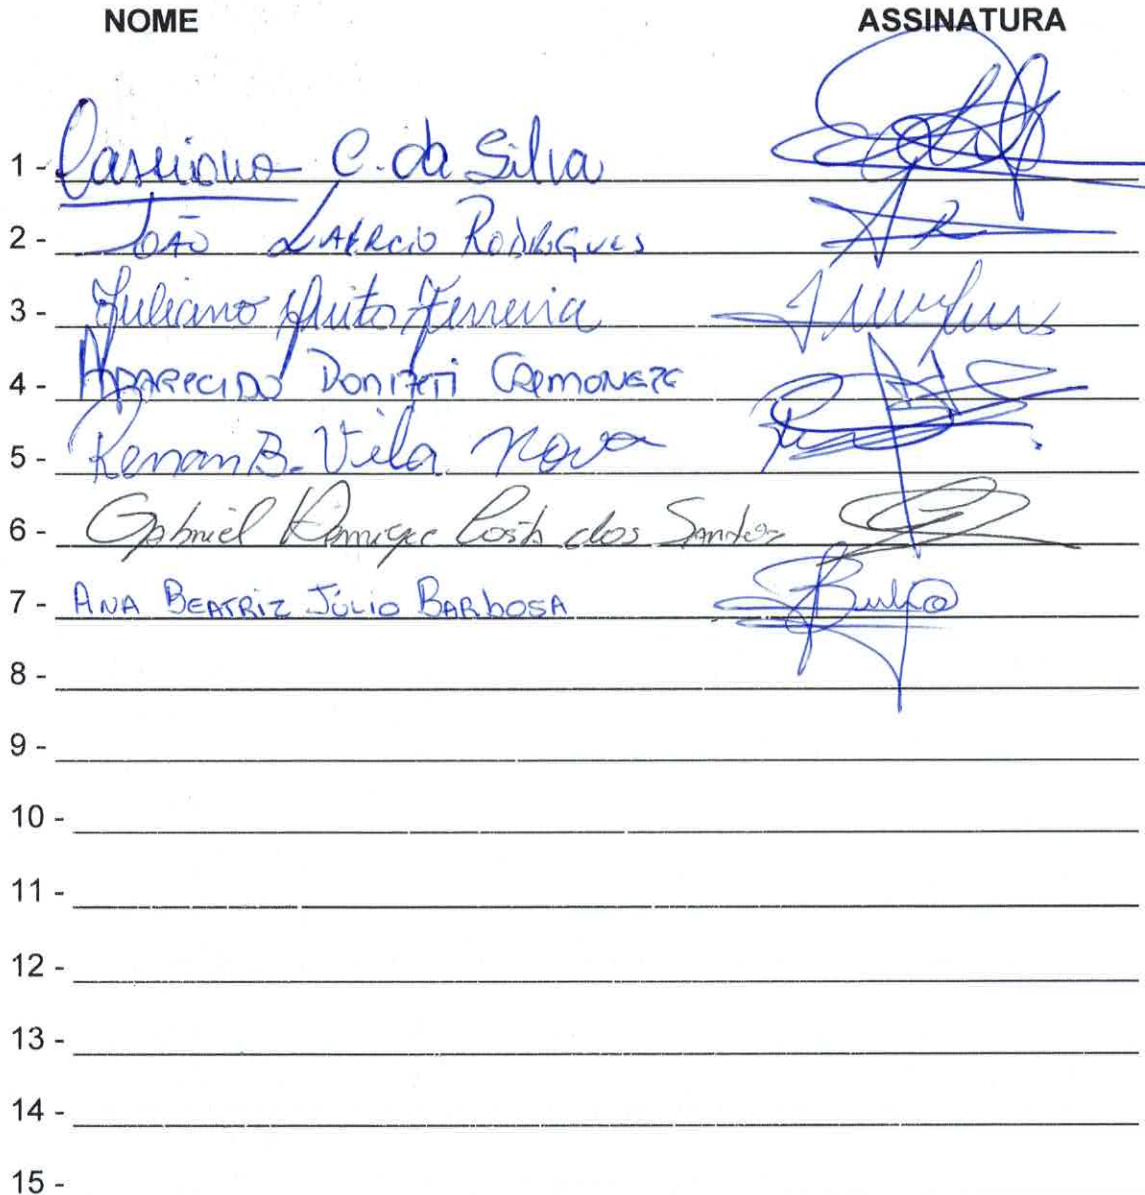 NOME ASSINATURA
1 - Cassiano C. da Silva
2 - JOÃO LAÉRCIO RODRIGUES
3 - Juliano Ferreira
4 - APARECIDO DONIZETI CREMONEZE
5 - Renan B. Vila Nova
6 - Gabriel Costa dos Santos
7 - ANA BEATRIZ JÚLIO BARBOSA
8 -
9 -
10 -
11 -
12 -
13 -
14 -
15 -